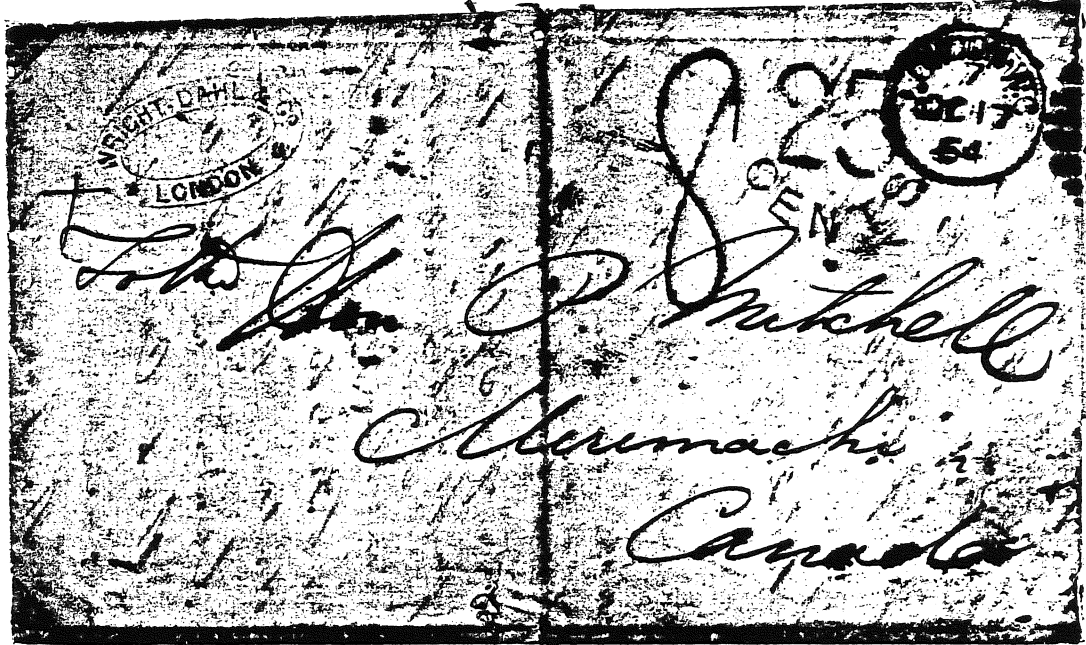 WRIGHT, DAHL & CO
LONDON
25
CENTS
7
DC 17
54
8
To the Hon P Mitchell
Miremachi
Canada